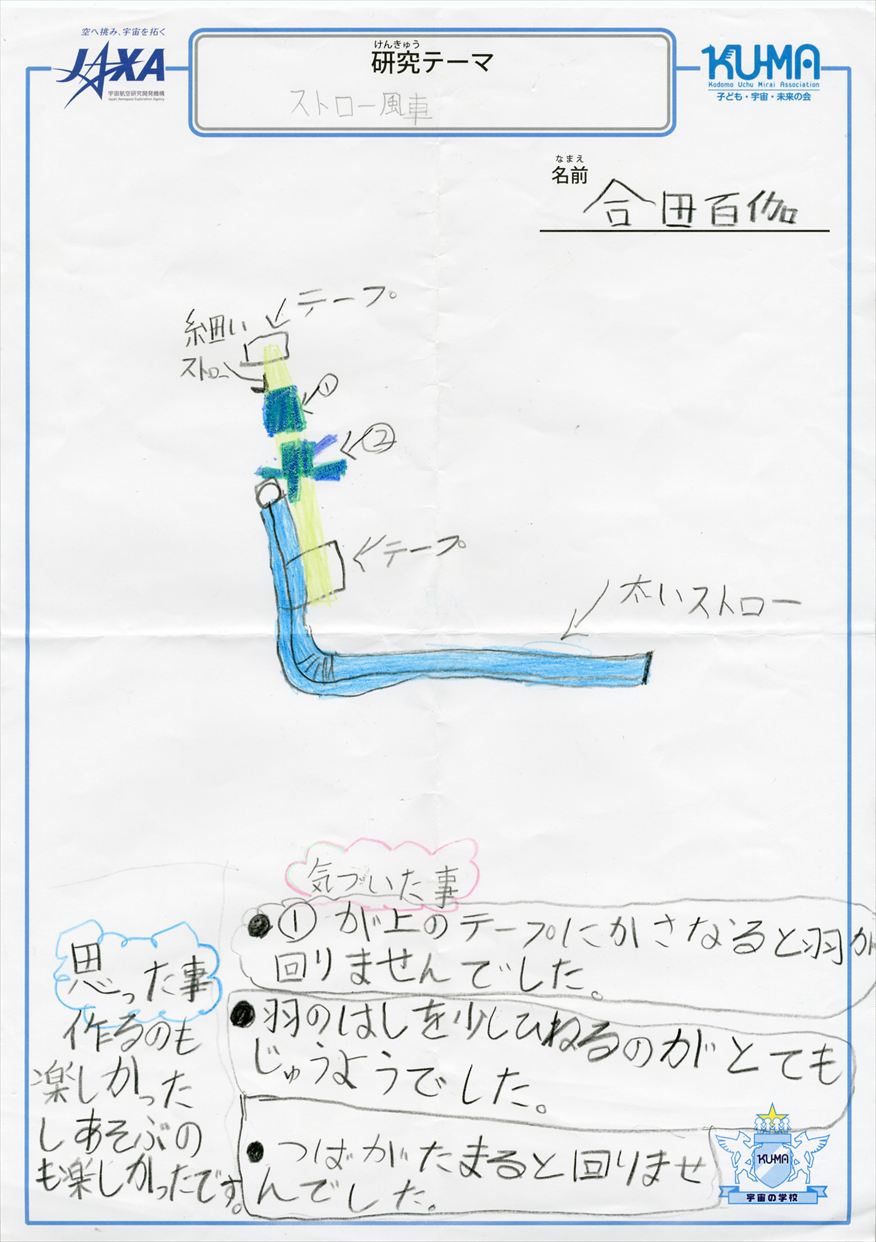 空へ挑み、宇宙を拓く
JAXA
宇宙航空研究開発機構
Japan Aerospace Exploration Agency
けんきゅう
研究テーマ
ストロー風車
KU-MA
Kodomo Uchu Mirai Association
子ども・宇宙・未来の会
なまえ
名前
合田百伽
テープ
細い
ストロー
①
②
テープ
太いストロー
気づいた事
●①が上のテープにかさなると羽が
回りませんでした。
●羽のはしを少しひねるのがとても
じゅうようでした。
●つばがたまると回りませ
んでした。
思った事
作るのも
楽しかった
しあそぶの
も楽しかったです。
KU-MA
宇宙の学校